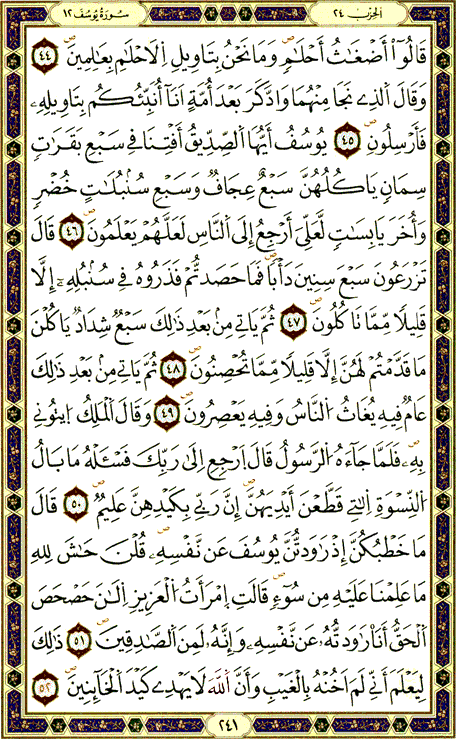 الحزب ٢٤ سورة يوسف ١٢
قَالُوٓاْ أَضْغَٰثُ أَحْلَٰمٖ وَمَا نَحْنُ بِتَاوِيلِ اِ۬لَاحْلَٰمِ بِعَٰلِمِينَۖ ٤٤
وَقَالَ اَ۬لذِے نَجَا مِنْهُمَا وَادَّكَرَ بَعْدَ أُمَّةٍ اَنَآ أُنَبِّئُكُم بِتَاوِيلِهِۦ
فَأَرْسِلُونِۖ ٤٥ يُوسُفُ أَيُّهَا اَ۬لصِّدِّيقُ أَفْتِنَا فِے سَبْعِ بَقَرَٰتٖ
سِمَانٖ يَاكُلُهُنَّ سَبْعٌ عِجَافٞ وَسَبْعِ سُنۢبُلَٰتٍ خُضْرٖ
وَأُخَرَ يَابِسَٰتٖ لَّعَلِّيَ أَرْجِعُ إِلَى اَ۬لنَّاسِ لَعَلَّهُمْ يَعْلَمُونَۖ ٤٦ قَالَ
تَزْرَعُونَ سَبْعَ سِنِينَ دَأْباٗ فَمَا حَصَدتُّمْ فَذَرُوهُ فِے سُنۢبُلِهِۦٓ إِلَّا
قَلِيلاٗ مِّمَّا تَاكُلُونَۖ ٤٧ ثُمَّ يَاتِے مِنۢ بَعْدِ ذَٰلِكَ سَبْعٞ شِدَادٞ يَاكُلْنَ
مَا قَدَّمْتُمْ لَهُنَّ إِلَّا قَلِيلاٗ مِّمَّا تُحْصِنُونَۖ ٤٨ ثُمَّ يَاتِے مِنۢ بَعْدِ ذَٰلِكَ
عَامٞ فِيهِ يُغَاثُ اُ۬لنَّاسُ وَفِيهِ يَعْصِرُونَۖ ٤٩ وَقَالَ اَ۬لْمَلِكُ اُ۪يتُونِے
بِهِۦۖ فَلَمَّا جَآءَهُ اُ۬لرَّسُولُ قَالَ اَ۪رْجِعِ اِلَىٰ رَبِّكَ فَسْـَٔلْهُ مَا بَالُ
اُ۬لنِّسْوَةِ اِ۬لتِے قَطَّعْنَ أَيْدِيَهُنَّۖ إِنَّ رَبِّے بِكَيْدِهِنَّ عَلِيمٞۖ ٥٠ قَالَ
مَا خَطْبُكُنَّ إِذْ رَٰوَدتُّنَّ يُوسُفَ عَن نَّفْسِهِۦۖ قُلْنَ حَٰشَ لِلهِ
مَا عَلِمْنَا عَلَيْهِ مِن سُوٓءٖۖ قَالَتِ اِ۪مْرَأَتُ اُ۬لْعَزِيزِ اِ۬لَٰنَ حَصْحَصَ
اَ۬لْحَقُّ أَنَا رَٰوَدتُّهُۥ عَن نَّفْسِهِۦ وَإِنَّهُۥ لَمِنَ اَ۬لصَّٰدِقِينَۖ ٥١ ذَٰلِكَ
لِيَعْلَمَ أَنِّے لَمَ اَخُنْهُ بِالْغَيْبِ وَأَنَّ اَ۬للَّهَ لَا يَهْدِے كَيْدَ اَ۬لْخَآئِنِينَۖ ٥٢
٢٤١